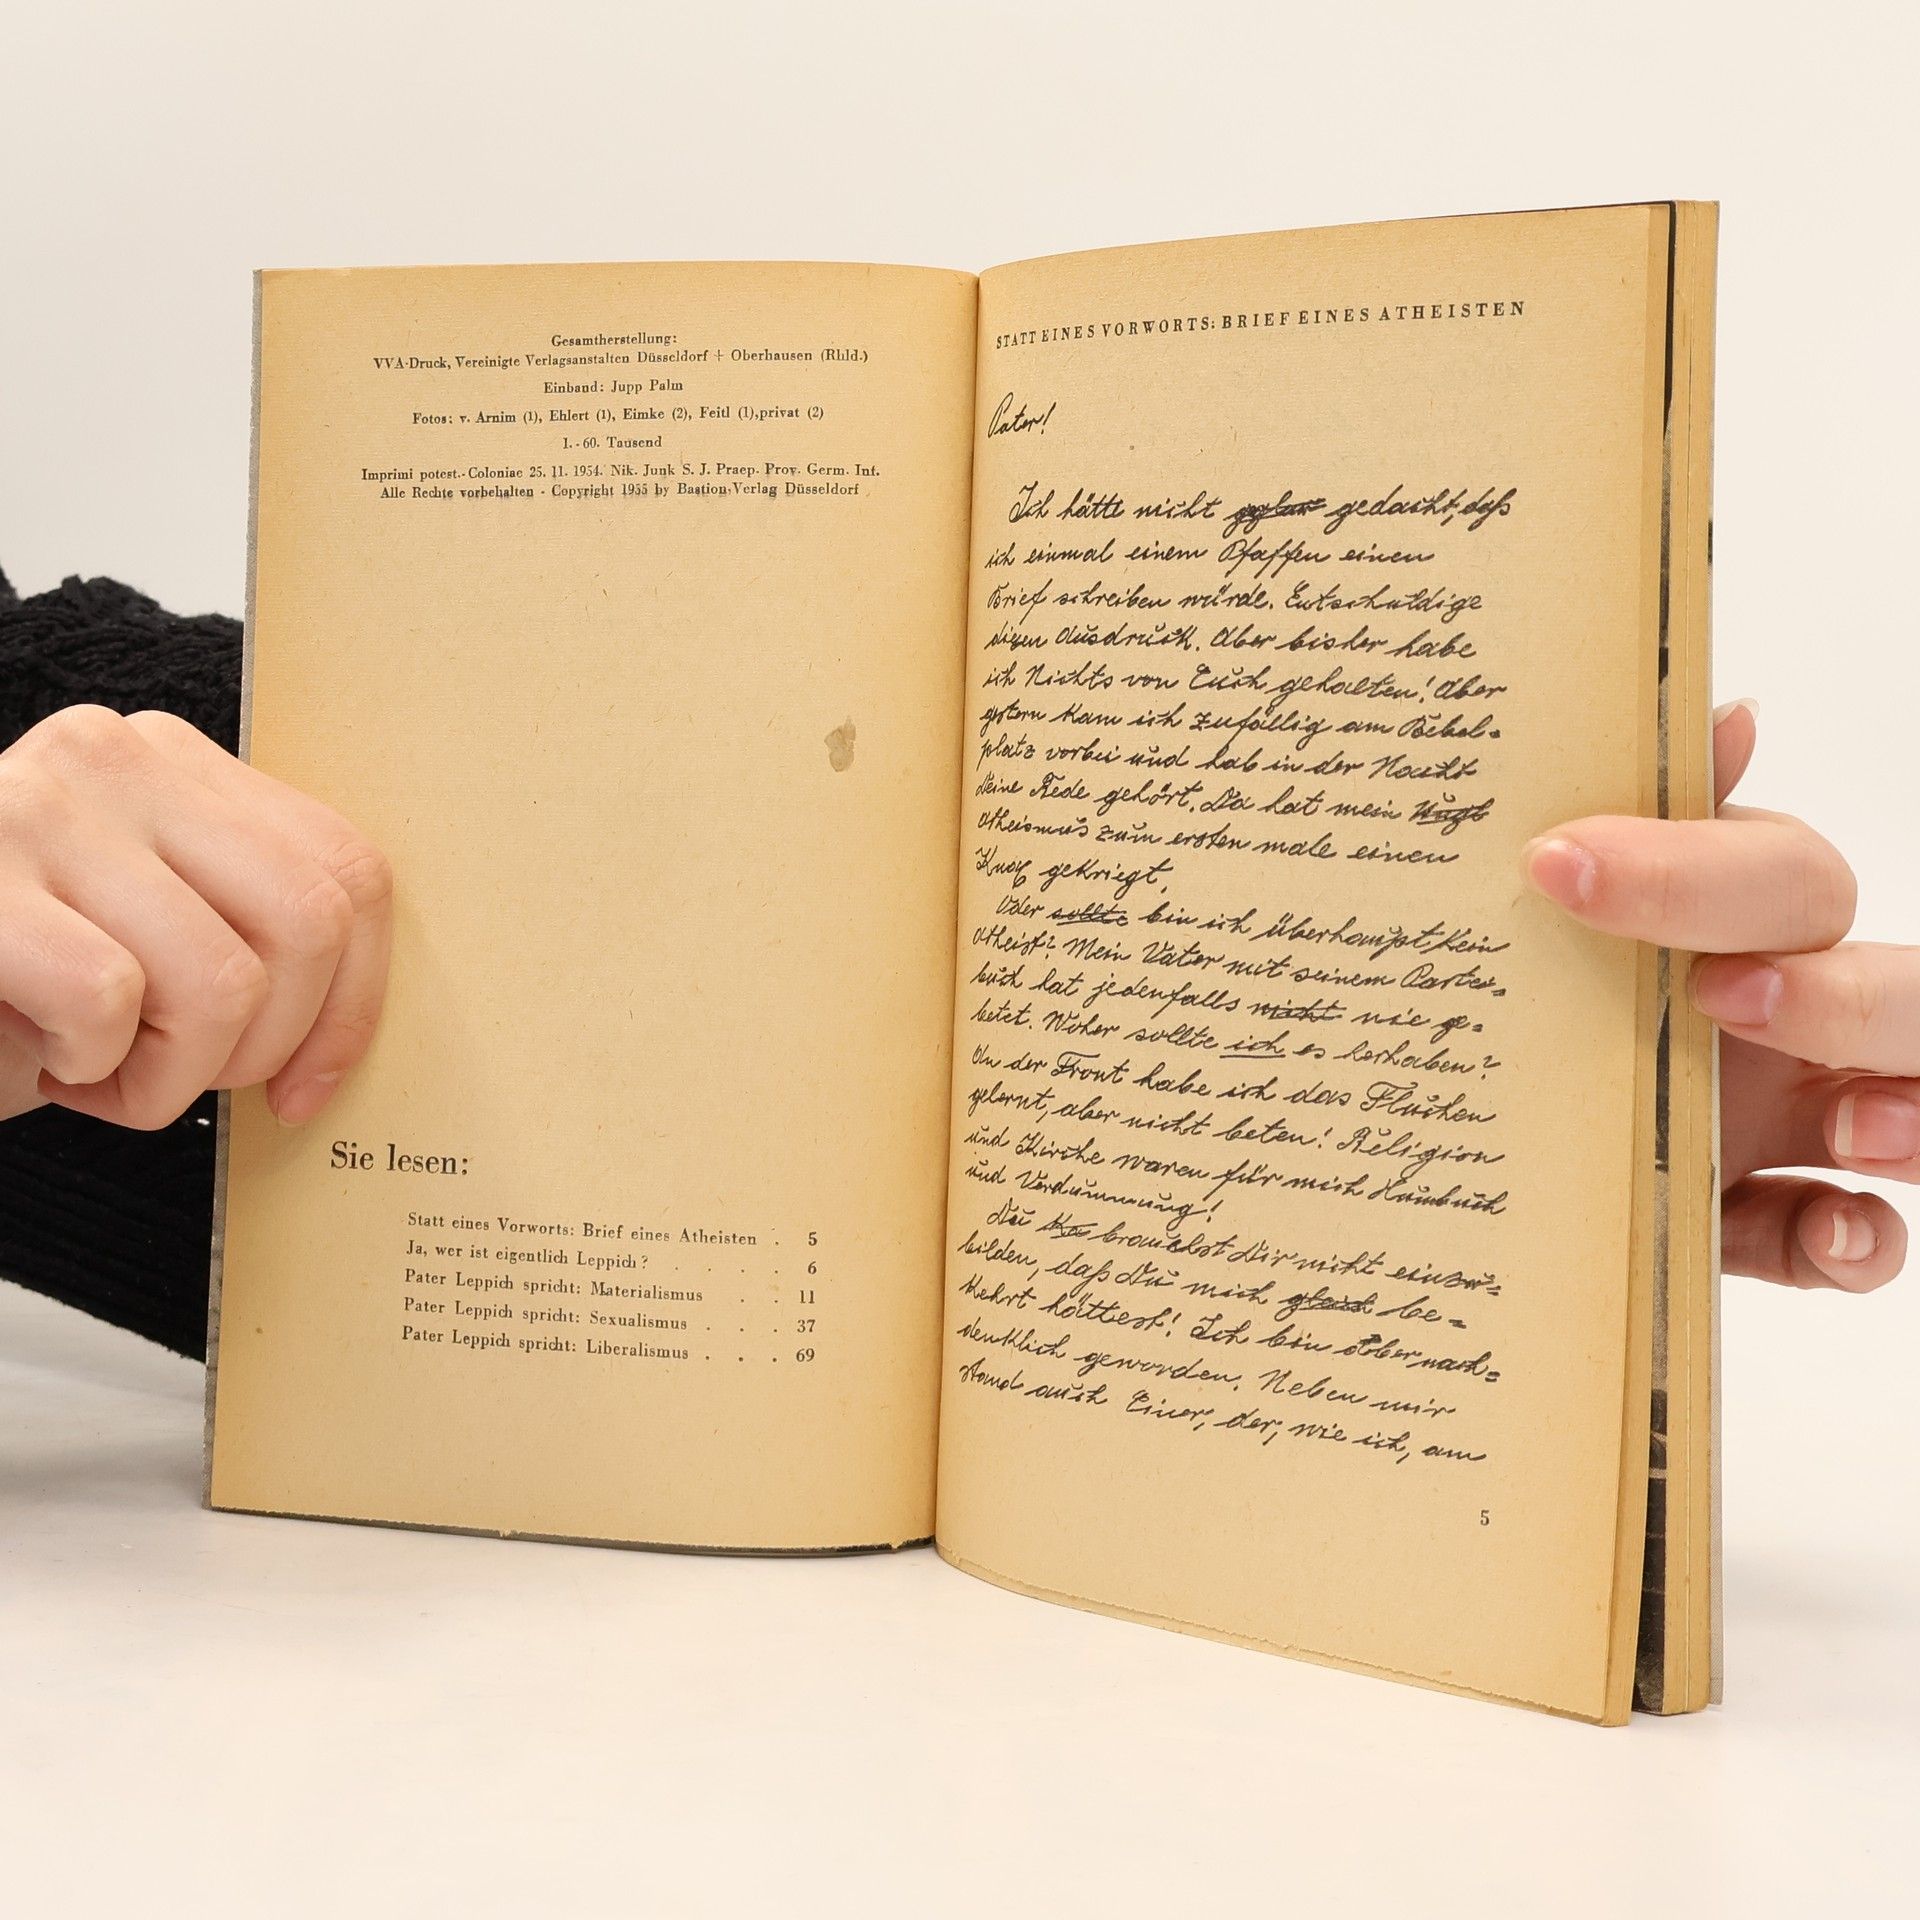 Gesamtherstellung:
VVA-Druck, Vereinigte Verlagsanstalten Düsseldorf + Oberhausen (Rhld.)
Einband: Jupp Palm
Fotos: v. Arnim (1), Ehlert (1), Eimke (2), Feitl (1),privat (2)
1.-60. Tausend
Imprimi potest.- Coloniae 25. 11. 1954. Nik. Junk S. J. Praep. Prov. Germ. Inf.
Alle Rechte vorbehalten - Copyright 1955 by Bastion-Verlag Düsseldorf
Sie lesen:
Statt eines Vorworts: Brief eines Atheisten . 5
Ja, wer ist eigentlich Leppich? . . . . 6
Pater Leppich spricht: Materialismus . . 11
Pater Leppich spricht: Sexualismus . . . 37
Pater Leppich spricht: Liberalismus . . . 69
STATT EINES VORWORTS: BRIEF EINES ATHEISTEN
Pater!
Ich hätte nicht gedacht, daß
ich einmal einem Pfaffen einen
Brief schreiben würde. Entschuldige
diesen Ausdruck. Aber bisher habe
ich Nichts von Euch gehalten! Aber
gestern kam ich zufällig am Bebel=
platz vorbei und hab in der Nacht
Deine Rede gehört. Da hat mein
Atheismus zum ersten male einen
Knax gekriegt.
Oder sollte bin ich überhaupt kein
Atheist? Mein Vater mit seinem Partei=
buch hat jedenfalls nicht nie ge=
betet. Woher sollte ich es herhaben?
An der Front habe ich das Fluchen
gelernt, aber nicht beten! Religion
und Kirche waren für mich Humbuch
und Verdummung!
Du Ka brauchst Dir nicht einzu=
bilden, daß Du mich gleich be=
kehrt hättest! Ich bin aber nach=
denklich geworden. Neben mir
stand auch Einer, der, wie ich, am
5